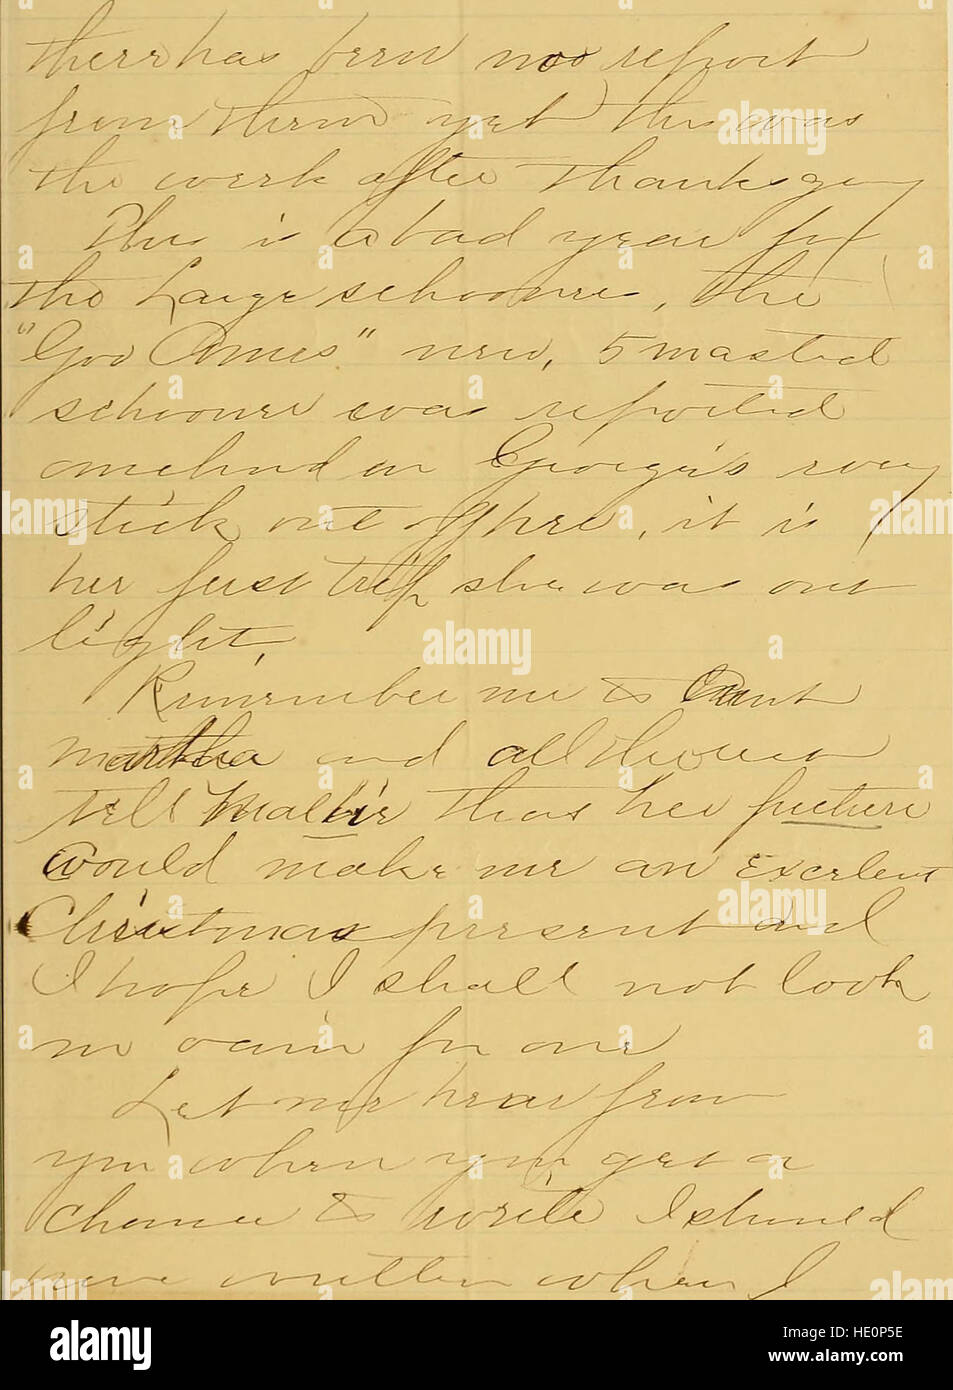 there has been no report
from them yet this was
the week after thanksgiving
This is a bad year for
the Large schooners, the
"Gov Ames" new, 5 masted
schooner was reported
anchored on George's every
stick out of her, it is
her first trip she was out
light.
Remember me to Aunt
martha and all the
tell Mallie that her picture
would make me an excelent
Christmas present and
I hope I shall not look
in vain for one
Let me hear from
you when you get a
chance to write I should
have written when I
alamy
Image ID: HE0P5E
www.alamy.com